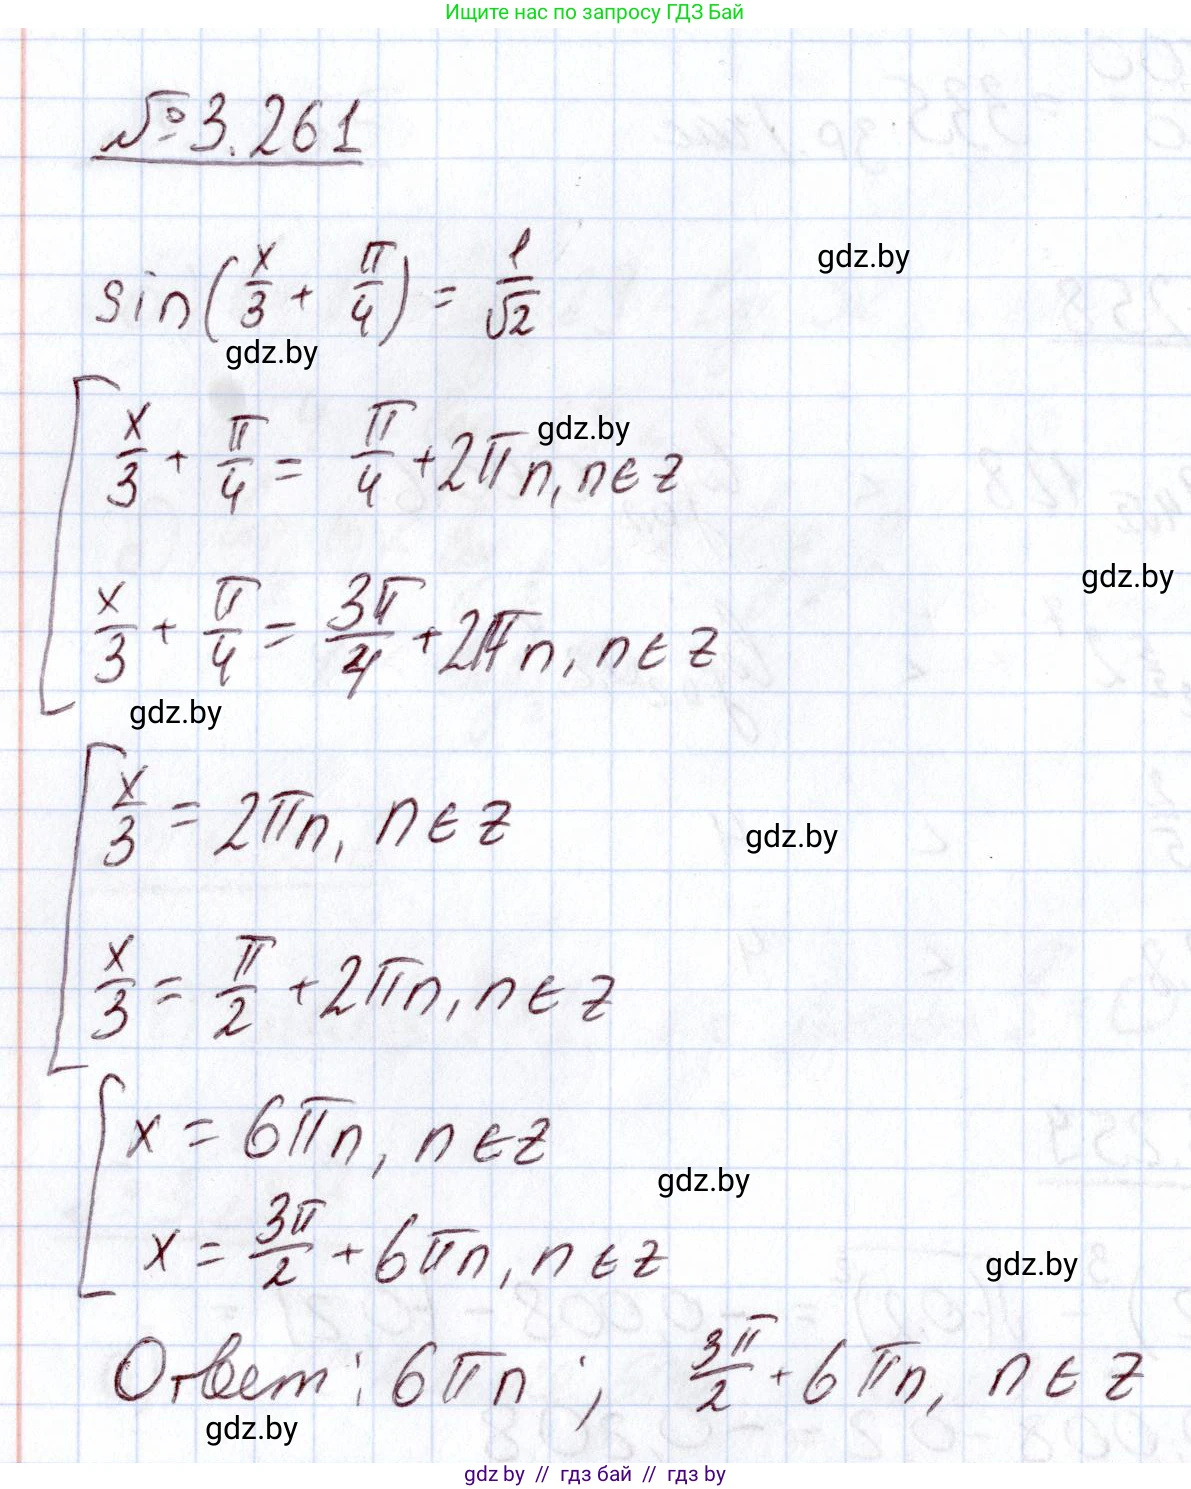 Ищите нас по запросу ГДЗ Бай
№ 3.261
sin(x/3 + π/4) = 1/√2
gdz.by
gdz.by
x/3 + π/4 = π/4 + 2πn, n ∈ z
gdz.by
x/3 + π/4 = 3π/4 + 2πn, n ∈ z
gdz.by
gdz.by
x/3 = 2πn, n ∈ z
gdz.by
x/3 = π/2 + 2πn, n ∈ z
x = 6πn, n ∈ z
gdz.by
x = 3π/2 + 6πn, n ∈ z
gdz.by
Ответ: 6πn; 3π/2 + 6πn, n ∈ z
gdz.by
gdz by // гдз бай // гдз by